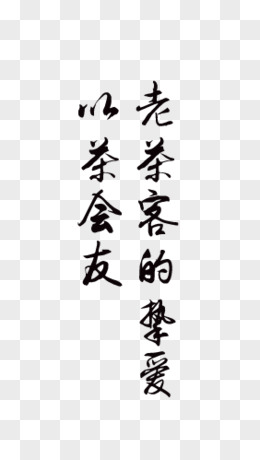 老茶客的挚爱
以茶会友